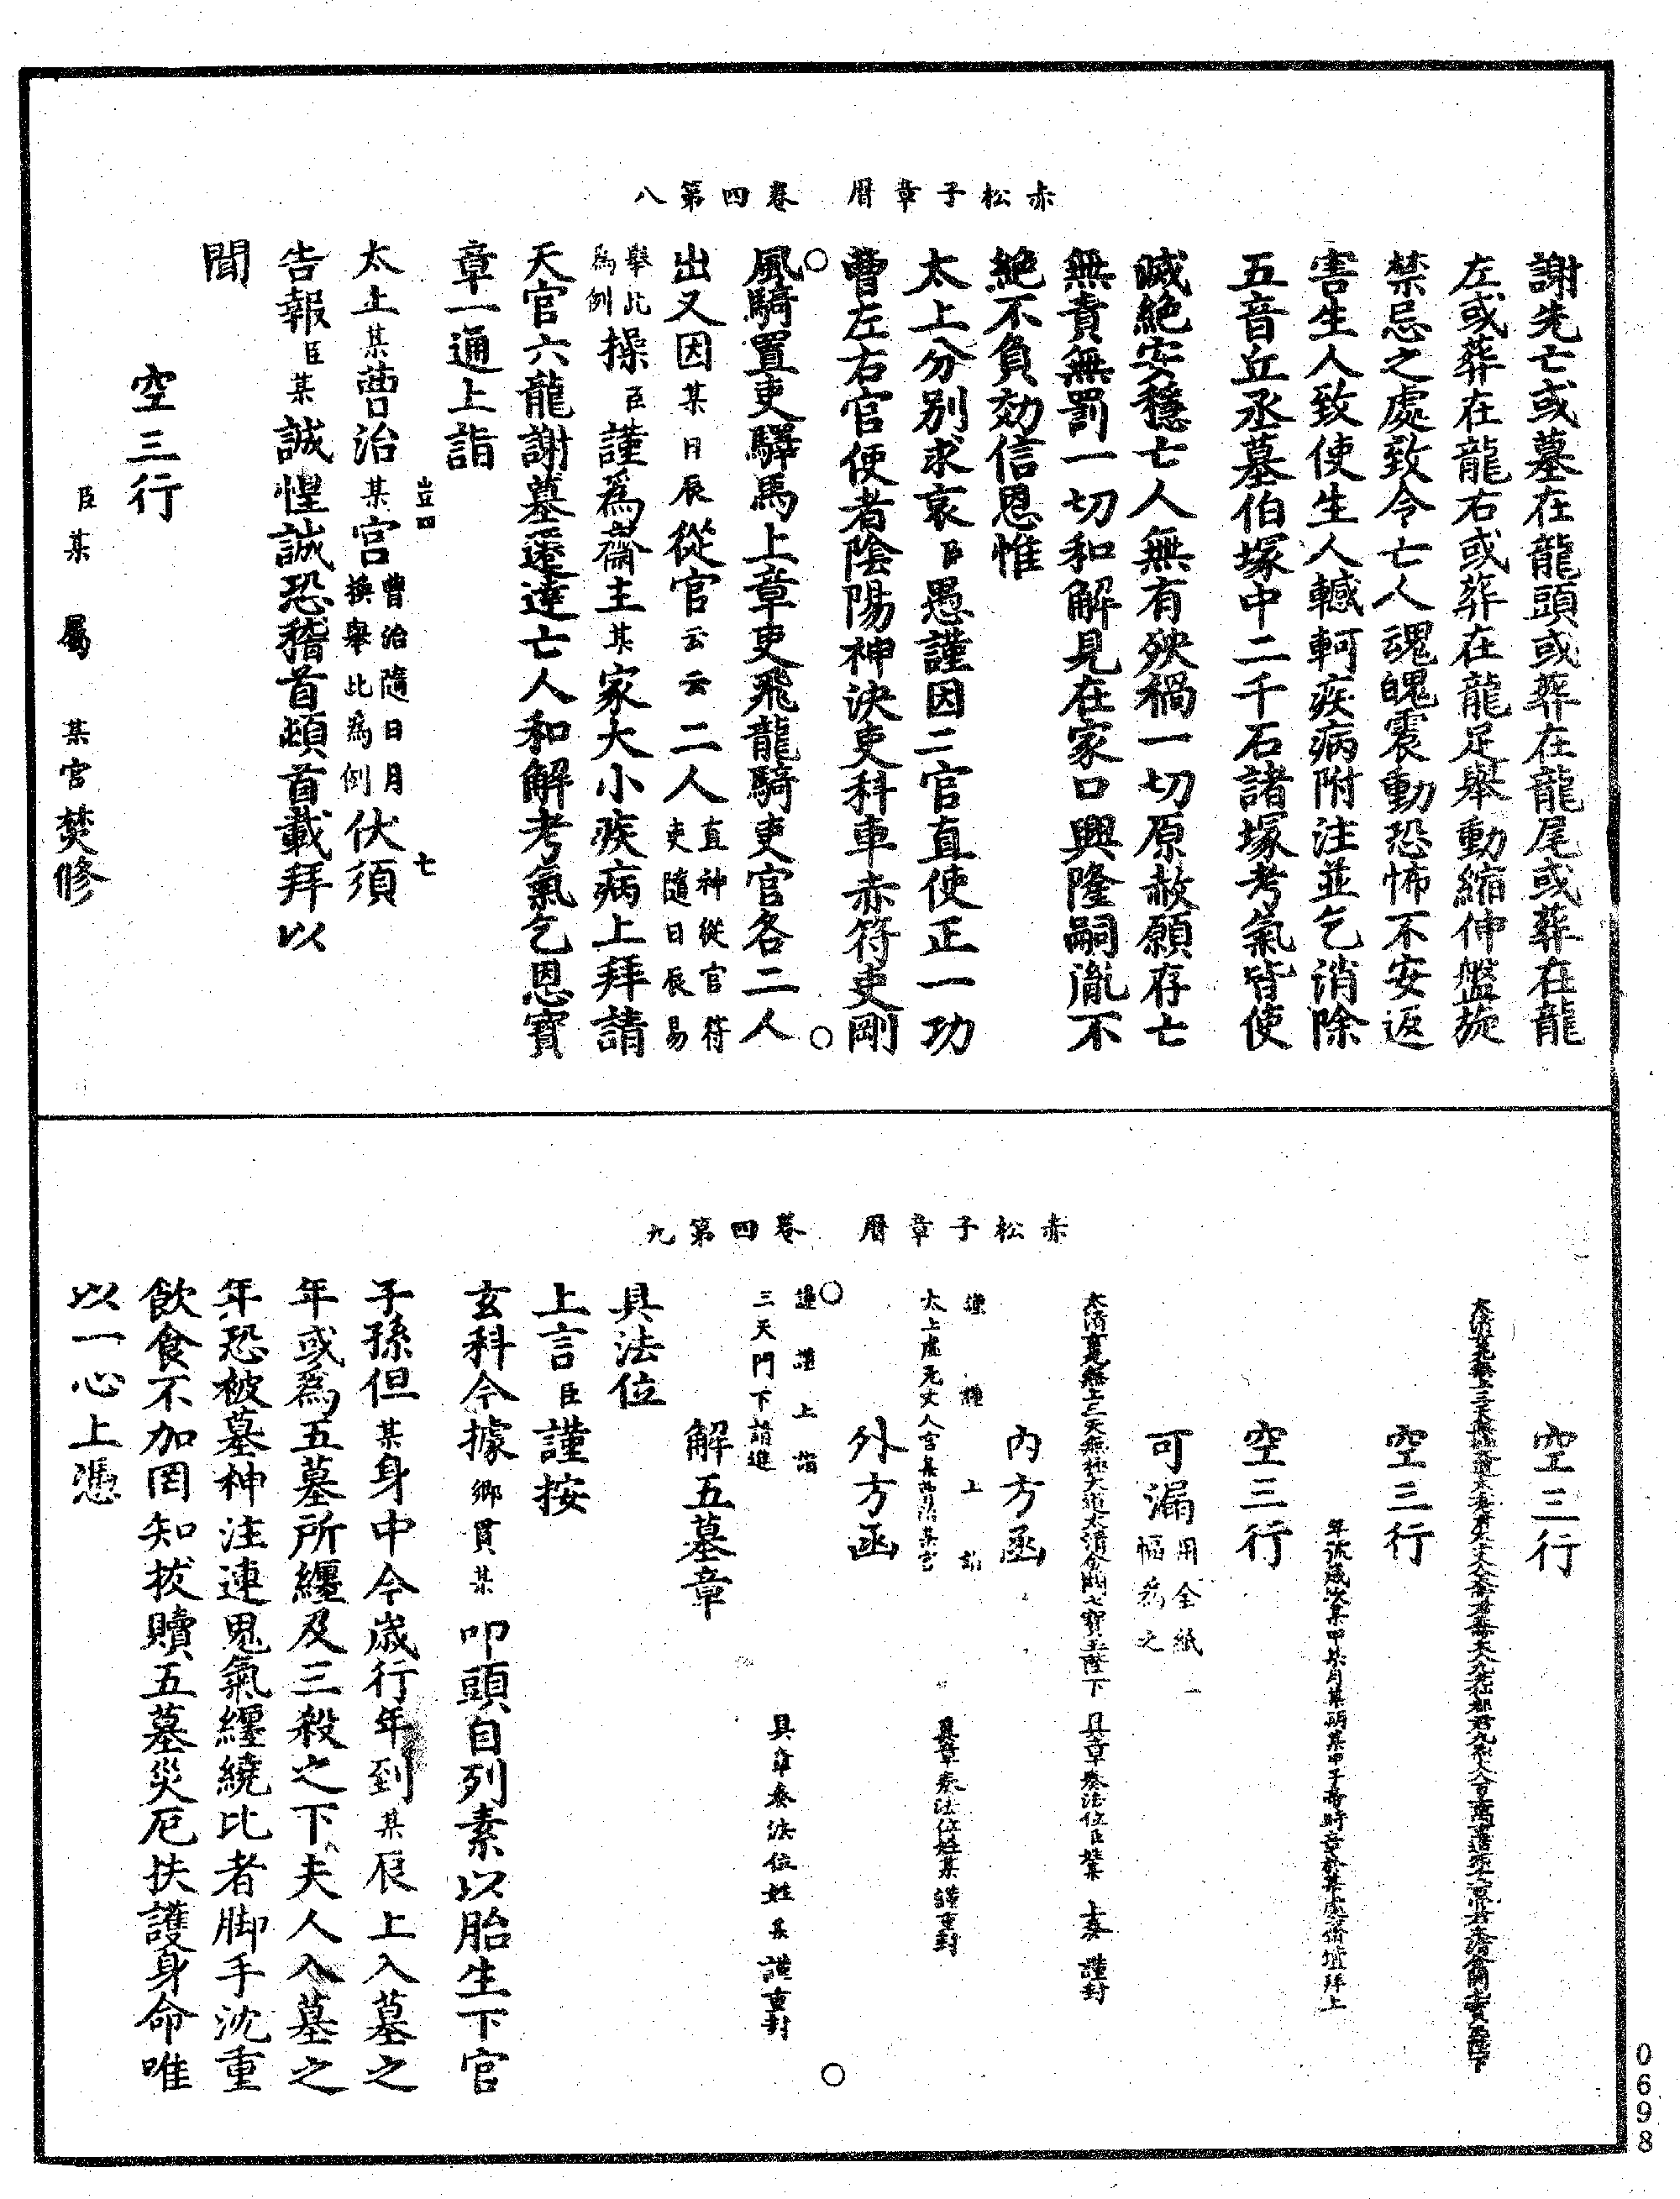 赤松子章曆　卷四第八
謝先亡或墓在龍頭或葬在龍尾或葬在龍
左或葬在龍右或葬在龍足舉動縮伸盤旋
禁忌之處致令亡人魂魄震動恐怖不安返
害生人致使生人轗軻疾病附注並乞消除
五音丘丞墓伯塚中二千石諸塚考氣皆使
滅絕安穩亡人無有殃禍一切原赦願存亡
無責無罰一切和解見在家口興隆嗣胤不
絕不負効信恩惟
太上分別求哀臣愚謹因二官直使正一功
曹左右官使者陰陽神決吏科車赤符吏剛
風騎置吏驛馬上章吏飛龍騎吏官各二人
出又因某日辰從官云云二人直神從官符吏隨日辰易
舉此為例操臣謹為齋主某家大小疾病上拜請
天官六龍謝墓遷達亡人和解考氣乞恩寶
章一通上詣
豈四　七
太上某曹治某宮曹治隨日月換舉此為例伏須
告報臣某誠惶誠恐稽首頓首載拜以
聞
空三行
臣某　屬　某宮焚修
赤松子章曆　卷四第九
空三行
空三行
年號歲次某甲某月某朔某甲子某時章於某處齋壇拜上
空三行
可漏用全紙一幅為之
太清玄元無上三天無極大道太清金闕七寶玉陛下　具章奏法位臣姓某　上奏　謹封
內方函
謹　謹　上　詣
太上虛无丈人宮某曹治某宮　具章奏法位姓某謹重封
外方函
謹謹上詣
三天門下請進　具章奏法位姓某謹重封
解五墓章
具法位
上言臣謹按
玄科今據鄉貫某叩頭自列素以胎生下官
子孫但某身中今歲行年到某辰上入墓之
年或為五墓所纏及三殺之下夫人入墓之
年恐被墓神注連鬼氣纏繞比者脚手沈重
飲食不加罔知拔贖五墓災厄扶護身命唯
以一心上憑
0698